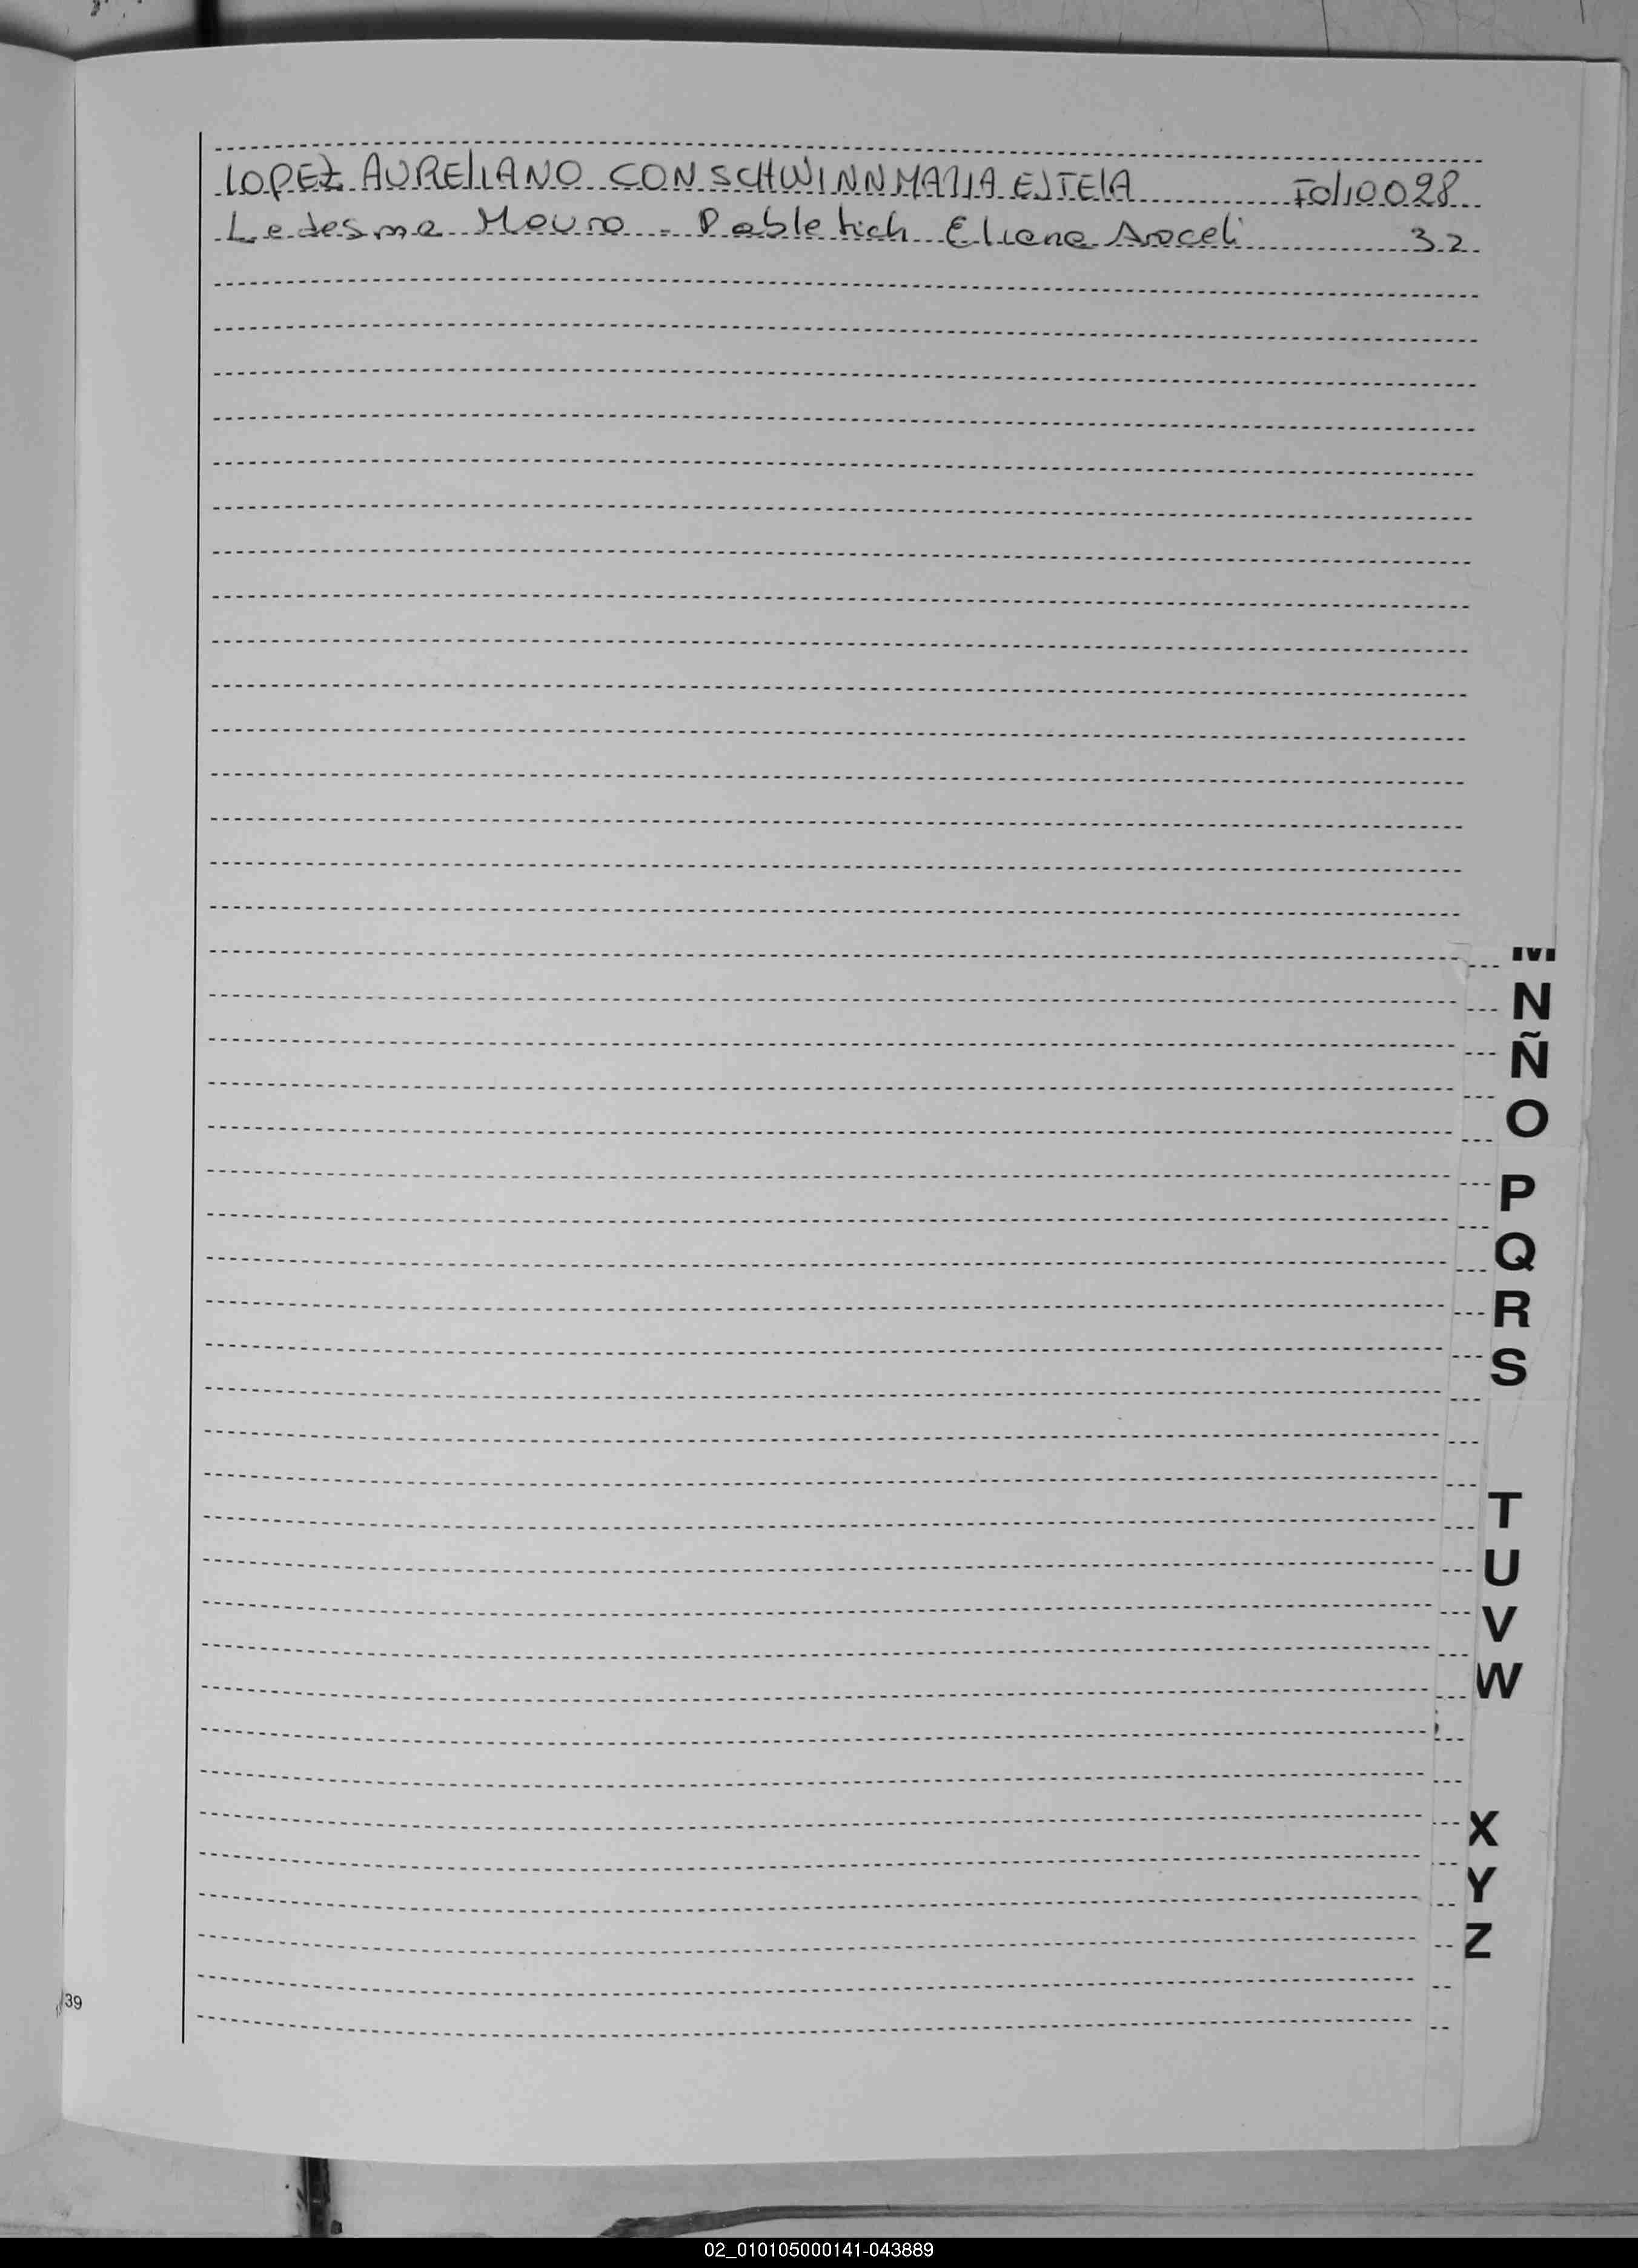 LOPEZ AURELIANO CON SCHWINN MARIA ESTELA Folio 028
Ledesma Mauro - Pabletich Eliana Araceli 32
M
N
Ñ
O
P
Q
R
S
T
U
V
W
X
Y
Z
39
02_010105000141-043889